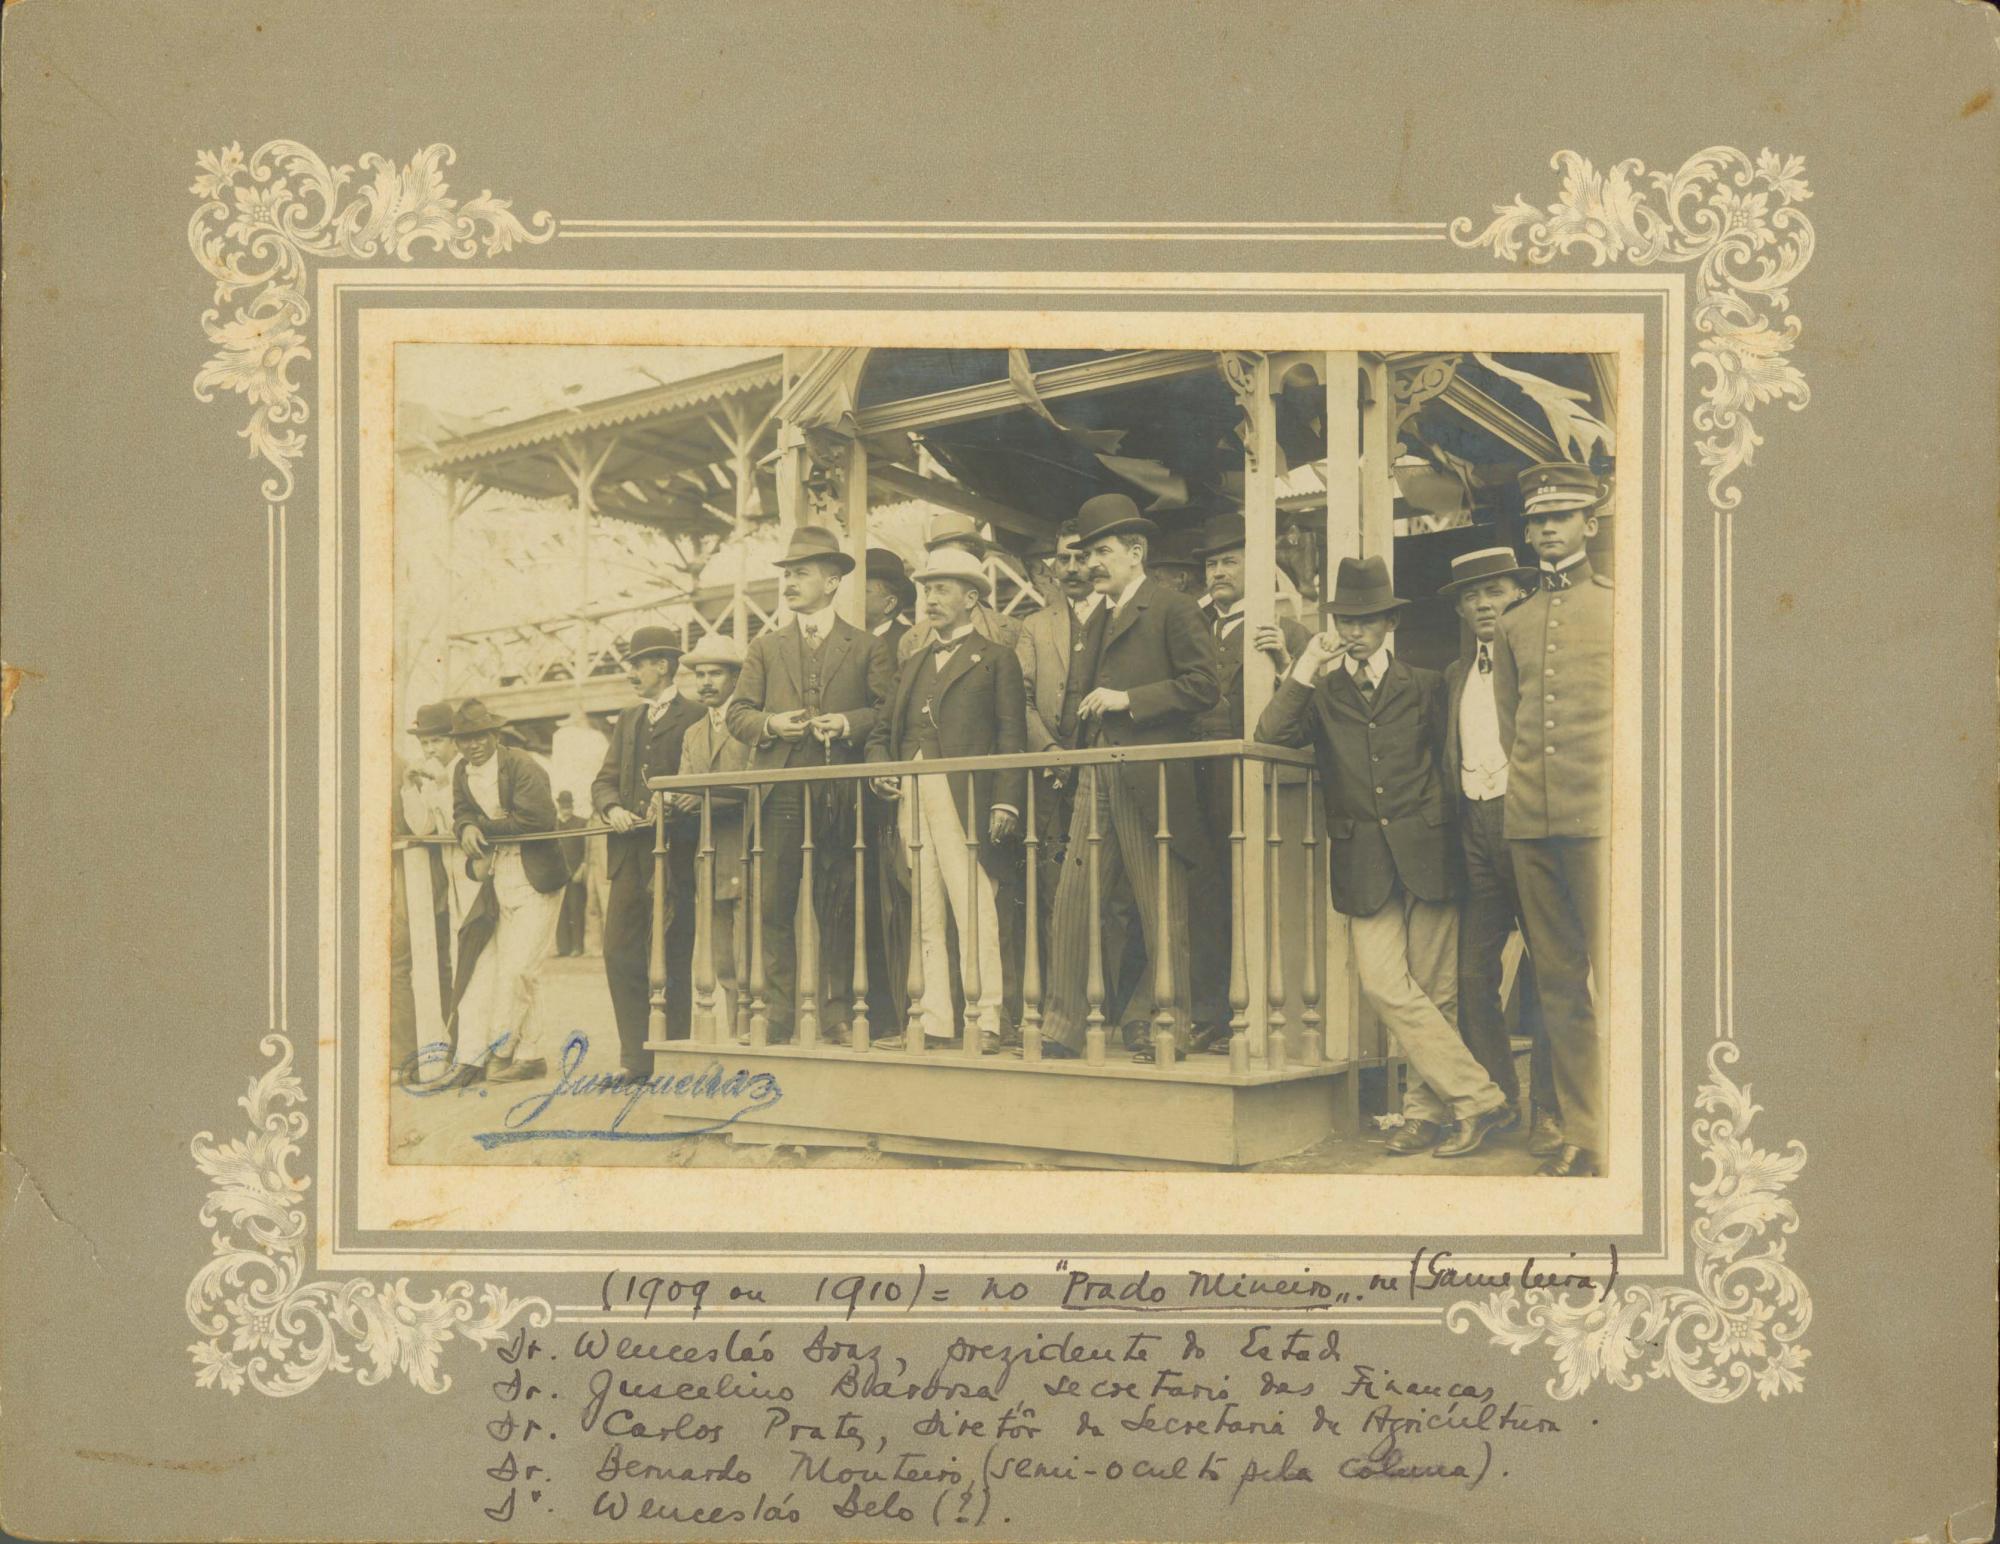 A. Junqueira
(1909 ou 1910) = no "Prado Mineiro„. na (Gameleira)
Dr. Wencesláo Braz, prezidente do Estado
Dr. Juscelino Barbosa, secretario das Finanças
Dr. Carlos Prates, diretôr da Secretaria da Agricultura.
Dr. Bernardo Monteiro, (semi-oculto pela coluna).
Dr. Wencesláo Belo (?).